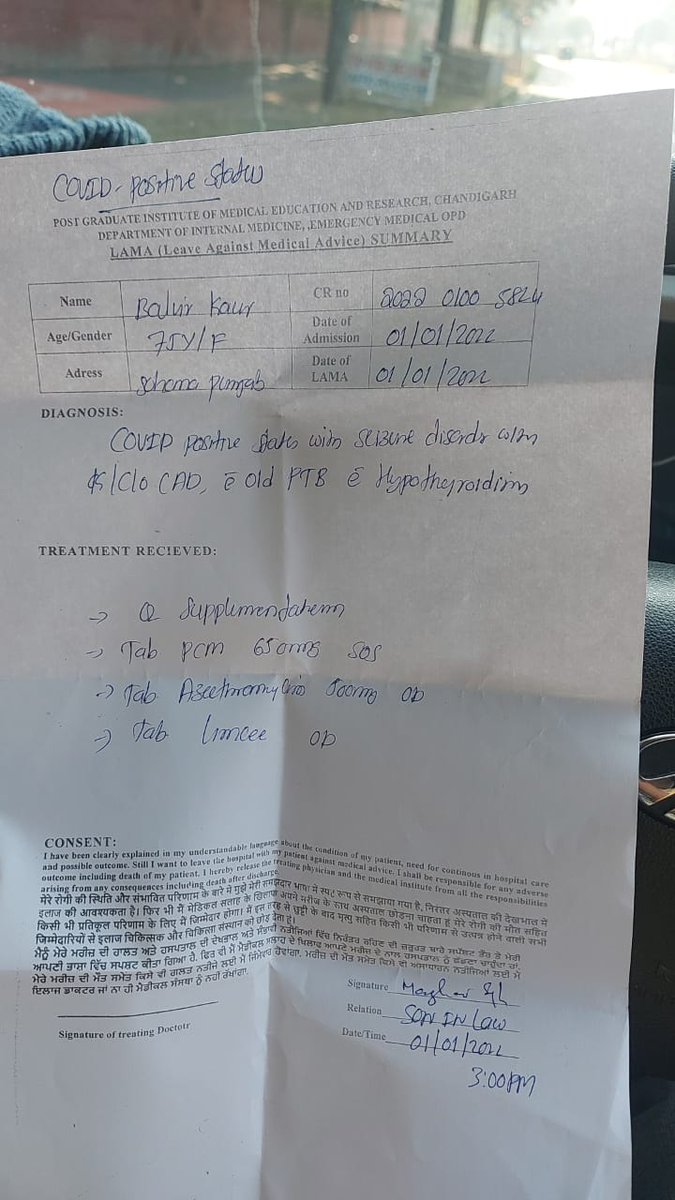 COVID-positive status
POST GRADUATE INSTITUTE OF MEDICAL EDUCATION AND RESEARCH, CHANDIGARH
DEPARTMENT OF INTERNAL MEDICINE, ,EMERGENCY MEDICAL OPD
LAMA (Leave Against Medical Advice) SUMMARY
Name Balvir Kaur CR no 2022 0100 5824
Age/Gender 75Y/F Date of Admission 01/01/2022
Adress Sohana punjab Date of LAMA 01/01/2022
DIAGNOSIS:
COVID positive status with seizure disorder
K/C/O CAD, c̄ old PTB c̄ Hypothyroidism
TREATMENT RECIEVED:
→ O2 Supplementation
→ Tab PCM 650mg SOS
→ Tab Azeethromycin 500mg OD
→ Tab Limcee OD
CONSENT:
I have been clearly explained in my understandable language about the condition of my patient, need for continous in hospital care
and possible outcome. Still I want to leave the hospital with my patient against medical advice. I shall be responsible for any adverse
outcome including death of my patient. I hereby release the treating physician and the medical institute from all the responsibilities
arising from any consequences including death after discharge.
मेरे रोगी की स्थिति और संभावित परिणाम के बारे में मुझे मेरी समझदार भाषा में स्पष्ट रूप से समझाया गया है, निरंतर अस्पताल की देखभाल में
इलाज की आवश्यकता है। फिर भी मैं मेडिकल सलाह के खिलाफ अपने मरीज के साथ अस्पताल छोड़ना चाहता हूं मेरे रोगी की मौत सहित
किसी भी प्रतिकूल परिणाम के लिए मैं जिम्मेदार होगा। मैं इस तरह से छुट्टी के बाद मृत्यु सहित किसी भी परिणाम से उत्पन्न होने वाली सभी
जिम्मेदारियों से इलाज चिकित्सक और चिकित्सा संस्थान को छोड़ देता हूं।
ਮੈਨੂੰ ਮੇਰੇ ਮਰੀਜ਼ ਦੀ ਹਾਲਤ ਅਤੇ ਹਸਪਤਾਲ ਦੀ ਦੇਖਭਾਲ ਅਤੇ ਸੰਭਾਵੀ ਨਤੀਜਿਆਂ ਵਿੱਚ ਨਿਰੰਤਰ ਰਹਿਣ ਦੀ ਜ਼ਰੂਰਤ ਬਾਰੇ ਸਪੱਸ਼ਟ ਤੌਰ ਤੇ ਮੇਰੀ
ਆਪਣੀ ਭਾਸ਼ਾ ਵਿੱਚ ਸਪਸ਼ਟ ਕੀਤਾ ਗਿਆ ਹੈ. ਫਿਰ ਵੀ ਮੈਂ ਮੈਡੀਕਲ ਸਲਾਹ ਦੇ ਖਿਲਾਫ ਆਪਣੇ ਮਰੀਜ਼ ਦੇ ਨਾਲ ਹਸਪਤਾਲ ਨੂੰ ਛੱਡਣਾ ਚਾਹੁੰਦਾ ਹਾਂ.
ਮੇਰੇ ਮਰੀਜ਼ ਦੀ ਮੌਤ ਸਮੇਤ ਕਿਸੇ ਵੀ ਗਲਤ ਨਤੀਜੇ ਲਈ ਮੈਂ ਜਿੰਮੇਵਾਰ ਹੋਵਾਂਗਾ. ਮਰੀਜ਼ ਦੀ ਮੌਤ ਸਮੇਤ ਕਿਸੇ ਵੀ ਨਤੀਜਿਆਂ ਲਈ ਮੈਂ
ਇਲਾਜ ਡਾਕਟਰ ਜਾਂ ਨਾ ਹੀ ਮੈਡੀਕਲ ਸੰਸਥਾ ਨੂੰ ਨਹੀਂ ਰੱਖਾਂਗਾ.
Signature
Relation SON IN LAW
Date/Time 01/01/2022
3:00PM
Signature of treating Doctotr